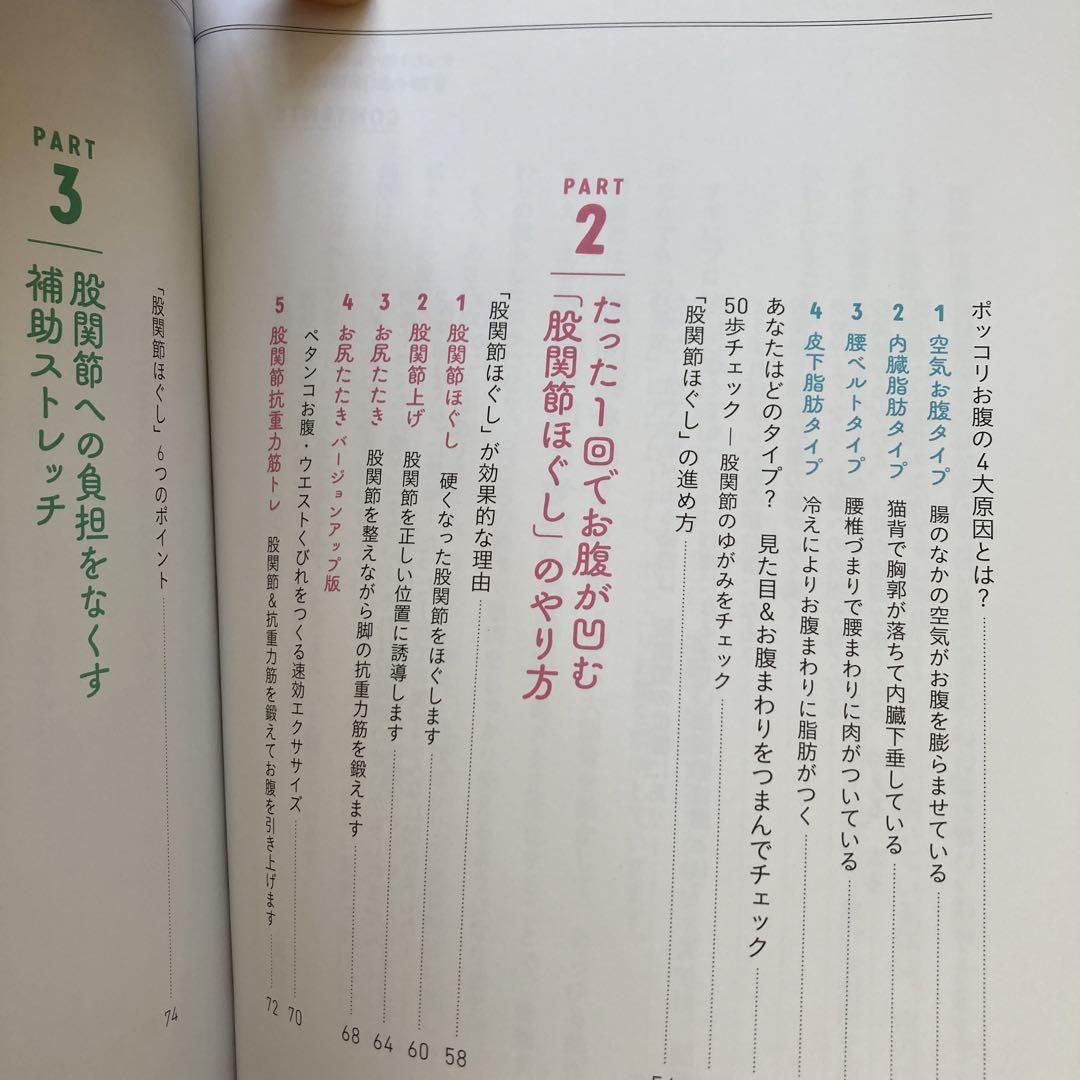 ポッコリお腹の4大原因とは?
1 空気お腹タイプ 腸のなかの空気がお腹を膨らませている
2 内臓脂肪タイプ 猫背で胸郭が落ちて内臓下垂している
3 腰ベルトタイプ 腰椎づまりで腰まわりに肉がついている
4 皮下脂肪タイプ 冷えによりお腹まわりに脂肪がつく
あなたはどのタイプ? 見た目&お腹まわりをつまんでチェック
50歩チェック ― 股関節のゆがみをチェック
「股関節ほぐし」の進め方
PART
2
たった1回でお腹が凹む
「股関節ほぐし」のやり方
「股関節ほぐし」が効果的な理由 58
1 股関節ほぐし 硬くなった股関節をほぐします 60
2 股関節上げ 股関節を正しい位置に誘導します 64
3 お尻たたき 股関節を整えながら脚の抗重力筋を鍛えます 68
4 お尻たたき バージョンアップ版
ペタンコお腹・ウエストくびれをつくる速効エクササイズ 70
5 股関節抗重力筋トレ 股関節&抗重力筋を鍛えてお腹を引き上げます 72
「股関節ほぐし」6つのポイント 74
PART
3
股関節への負担をなくす
補助ストレッチ